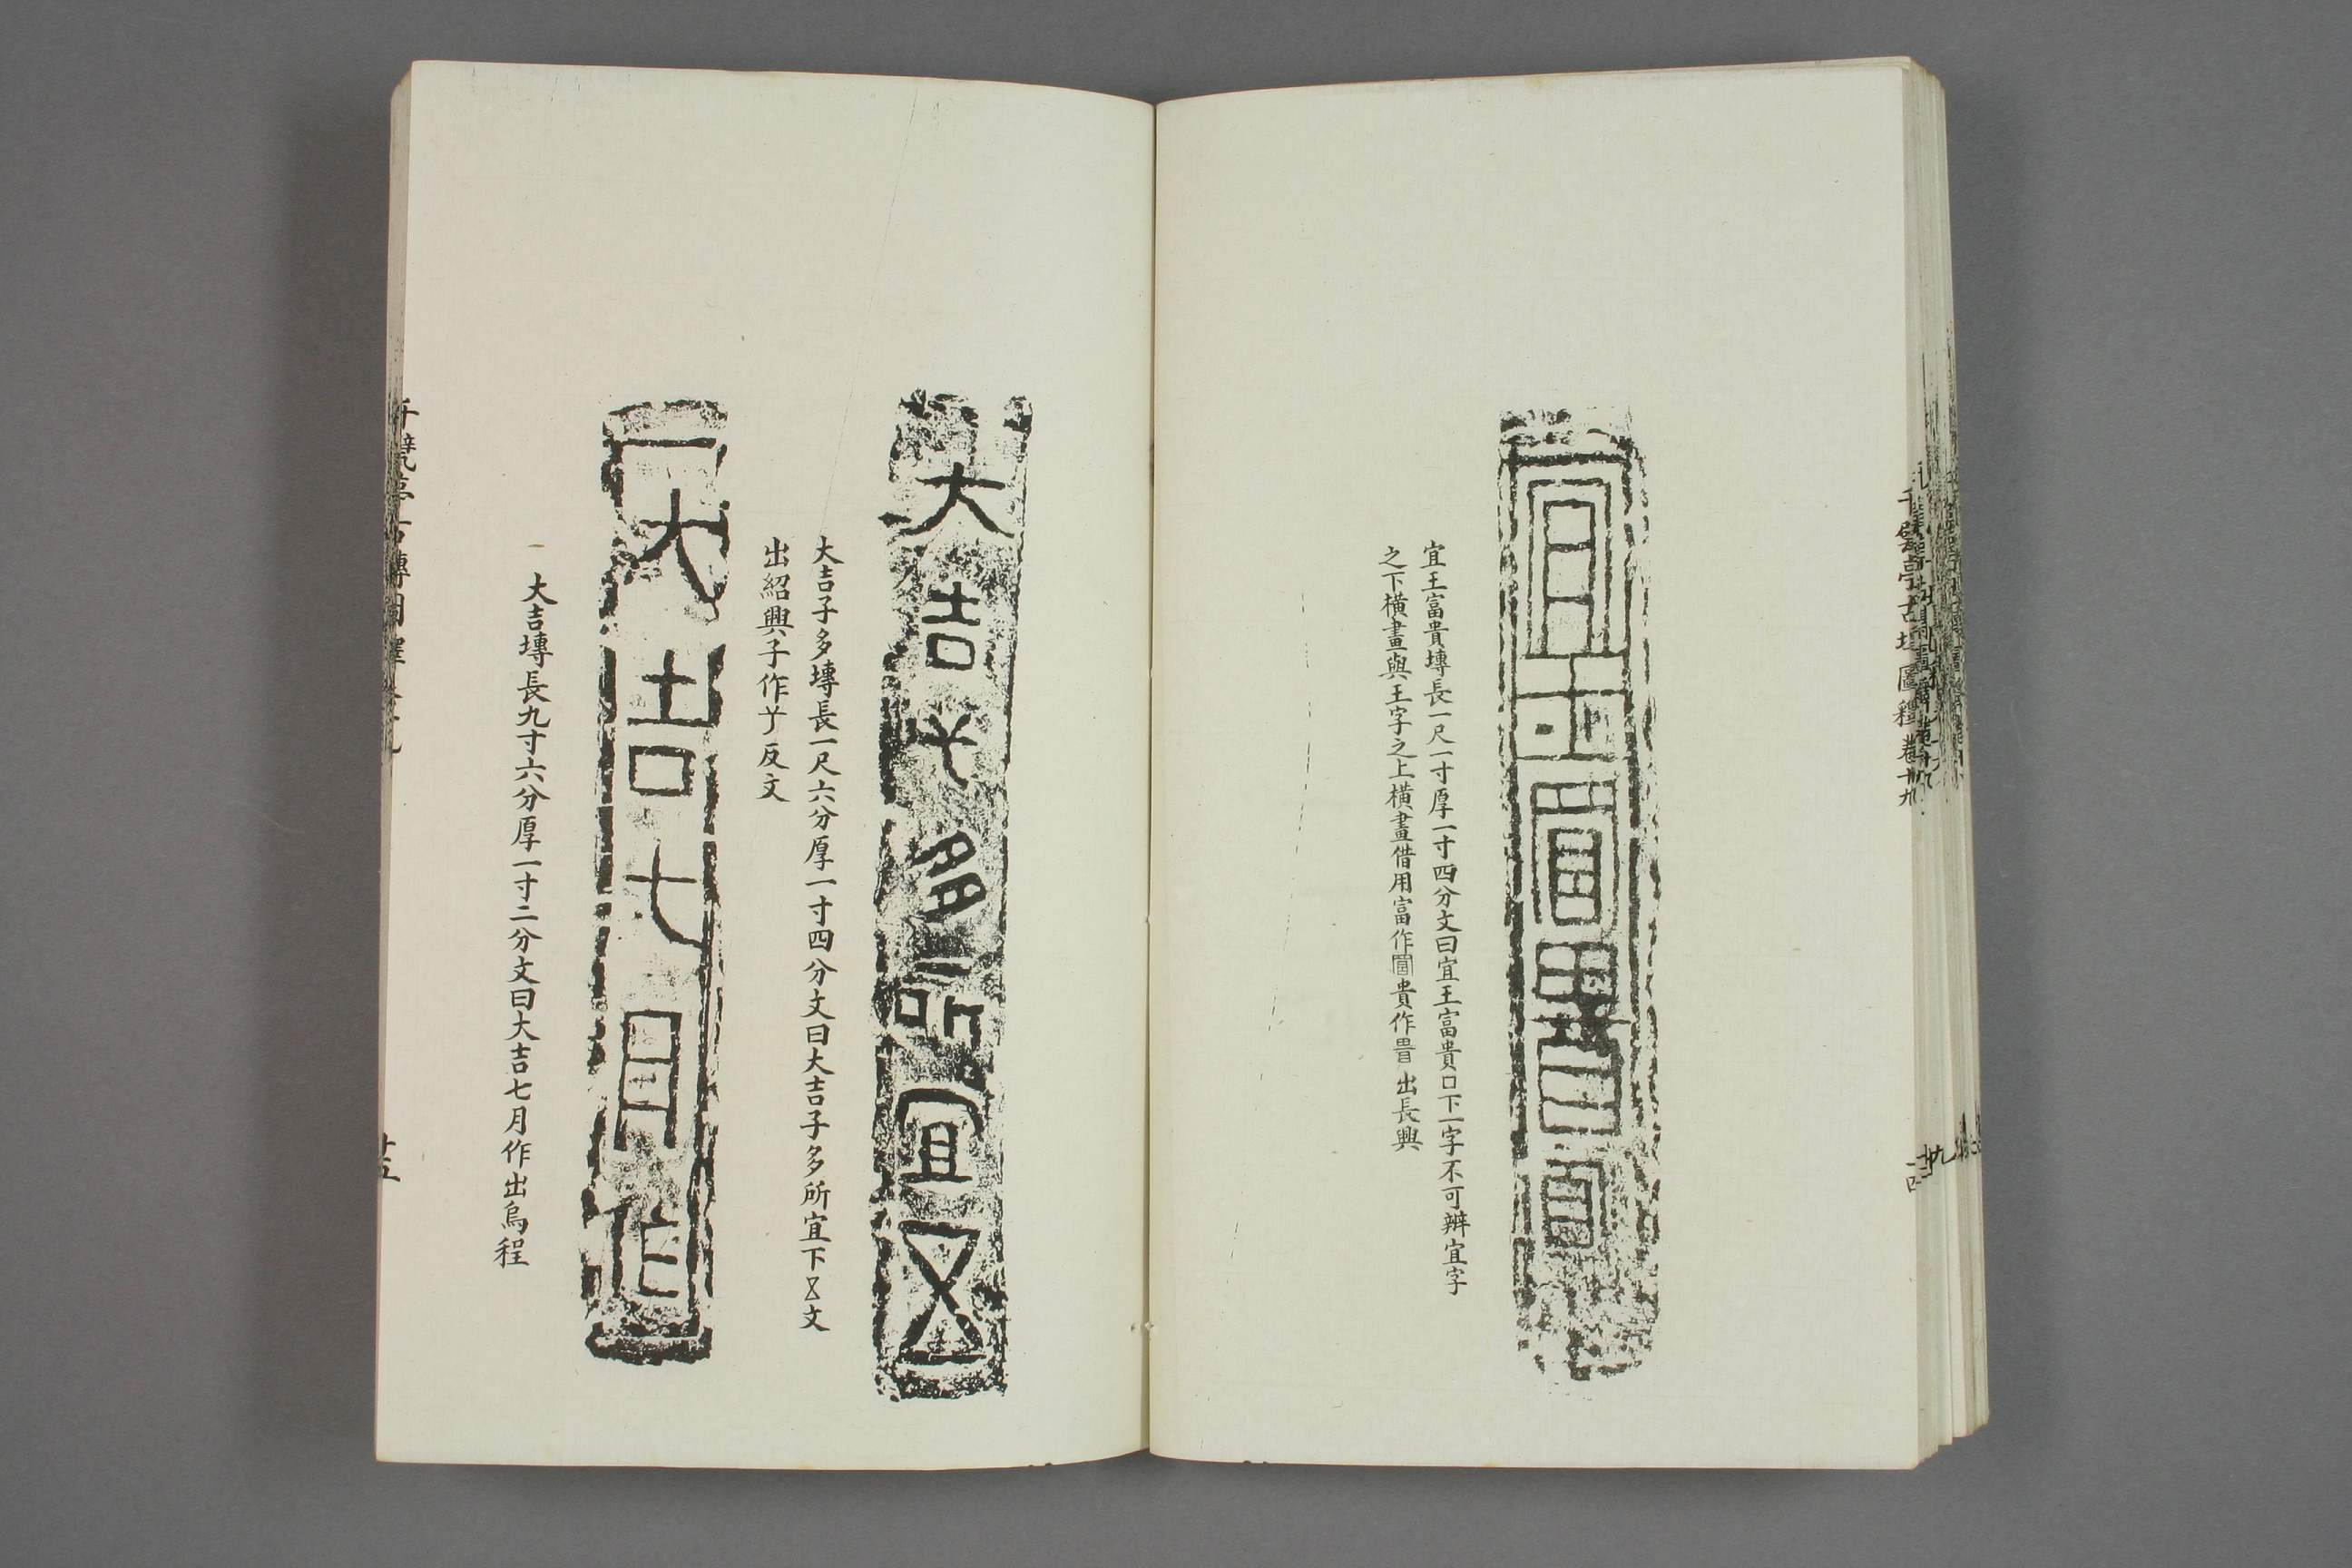 宜王富貴塼長一尺一寸厚一寸四分文曰宜王富貴口下一字不可辨宜字
之下橫畫與王字之上橫畫借用富作貴作出長興
大吉子多所宜
大吉子多塼長一尺六分厚一寸四分文曰大吉子多所宜下文
出紹興子作反文
大吉七月作
大吉塼長九寸六分厚一寸二分文曰大吉七月作出烏程
千甓亭古塼圖釋